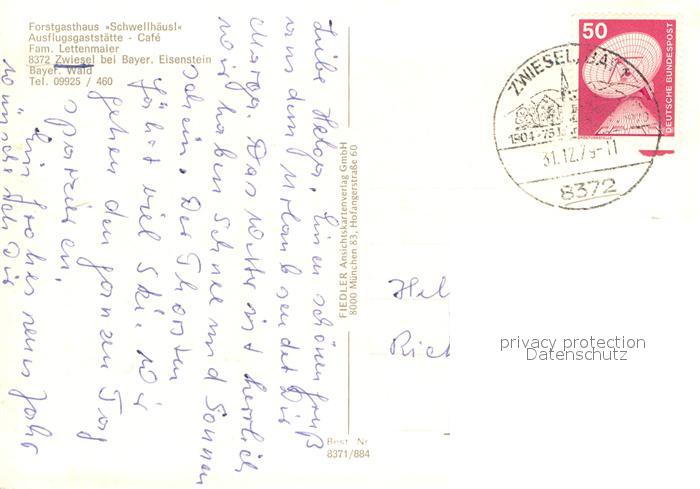 Forstgasthaus »Schwellhäusl«
Ausflugsgaststätte - Café
Fam. Lettenmaier
8372 Zwiesel bei Bayer. Eisenstein
Bayer. Wald
Tel. 09925 / 460
Liebe Helga, Einen schönen Gruß
aus dem Urlaub sendet Dir
Marga. Das Wetter ist herrlich
wir haben Schnee und Sonnen
schein. Der Thorsten
fährt viel Ski. Wir
gehen den ganzen Tag
spazieren.
Ein frohes neues Jahr
wünsche ich Dir
FIEDLER Ansichtskartenverlag GmbH
8000 München 83, Hofangerstraße 60
Best. Nr
8371/884
50
DEUTSCHE BUNDESPOST
ZWIESEL, BAY
1904-
31.12.79-11
8372
Hel
Rich
privacy protection
Datenschutz